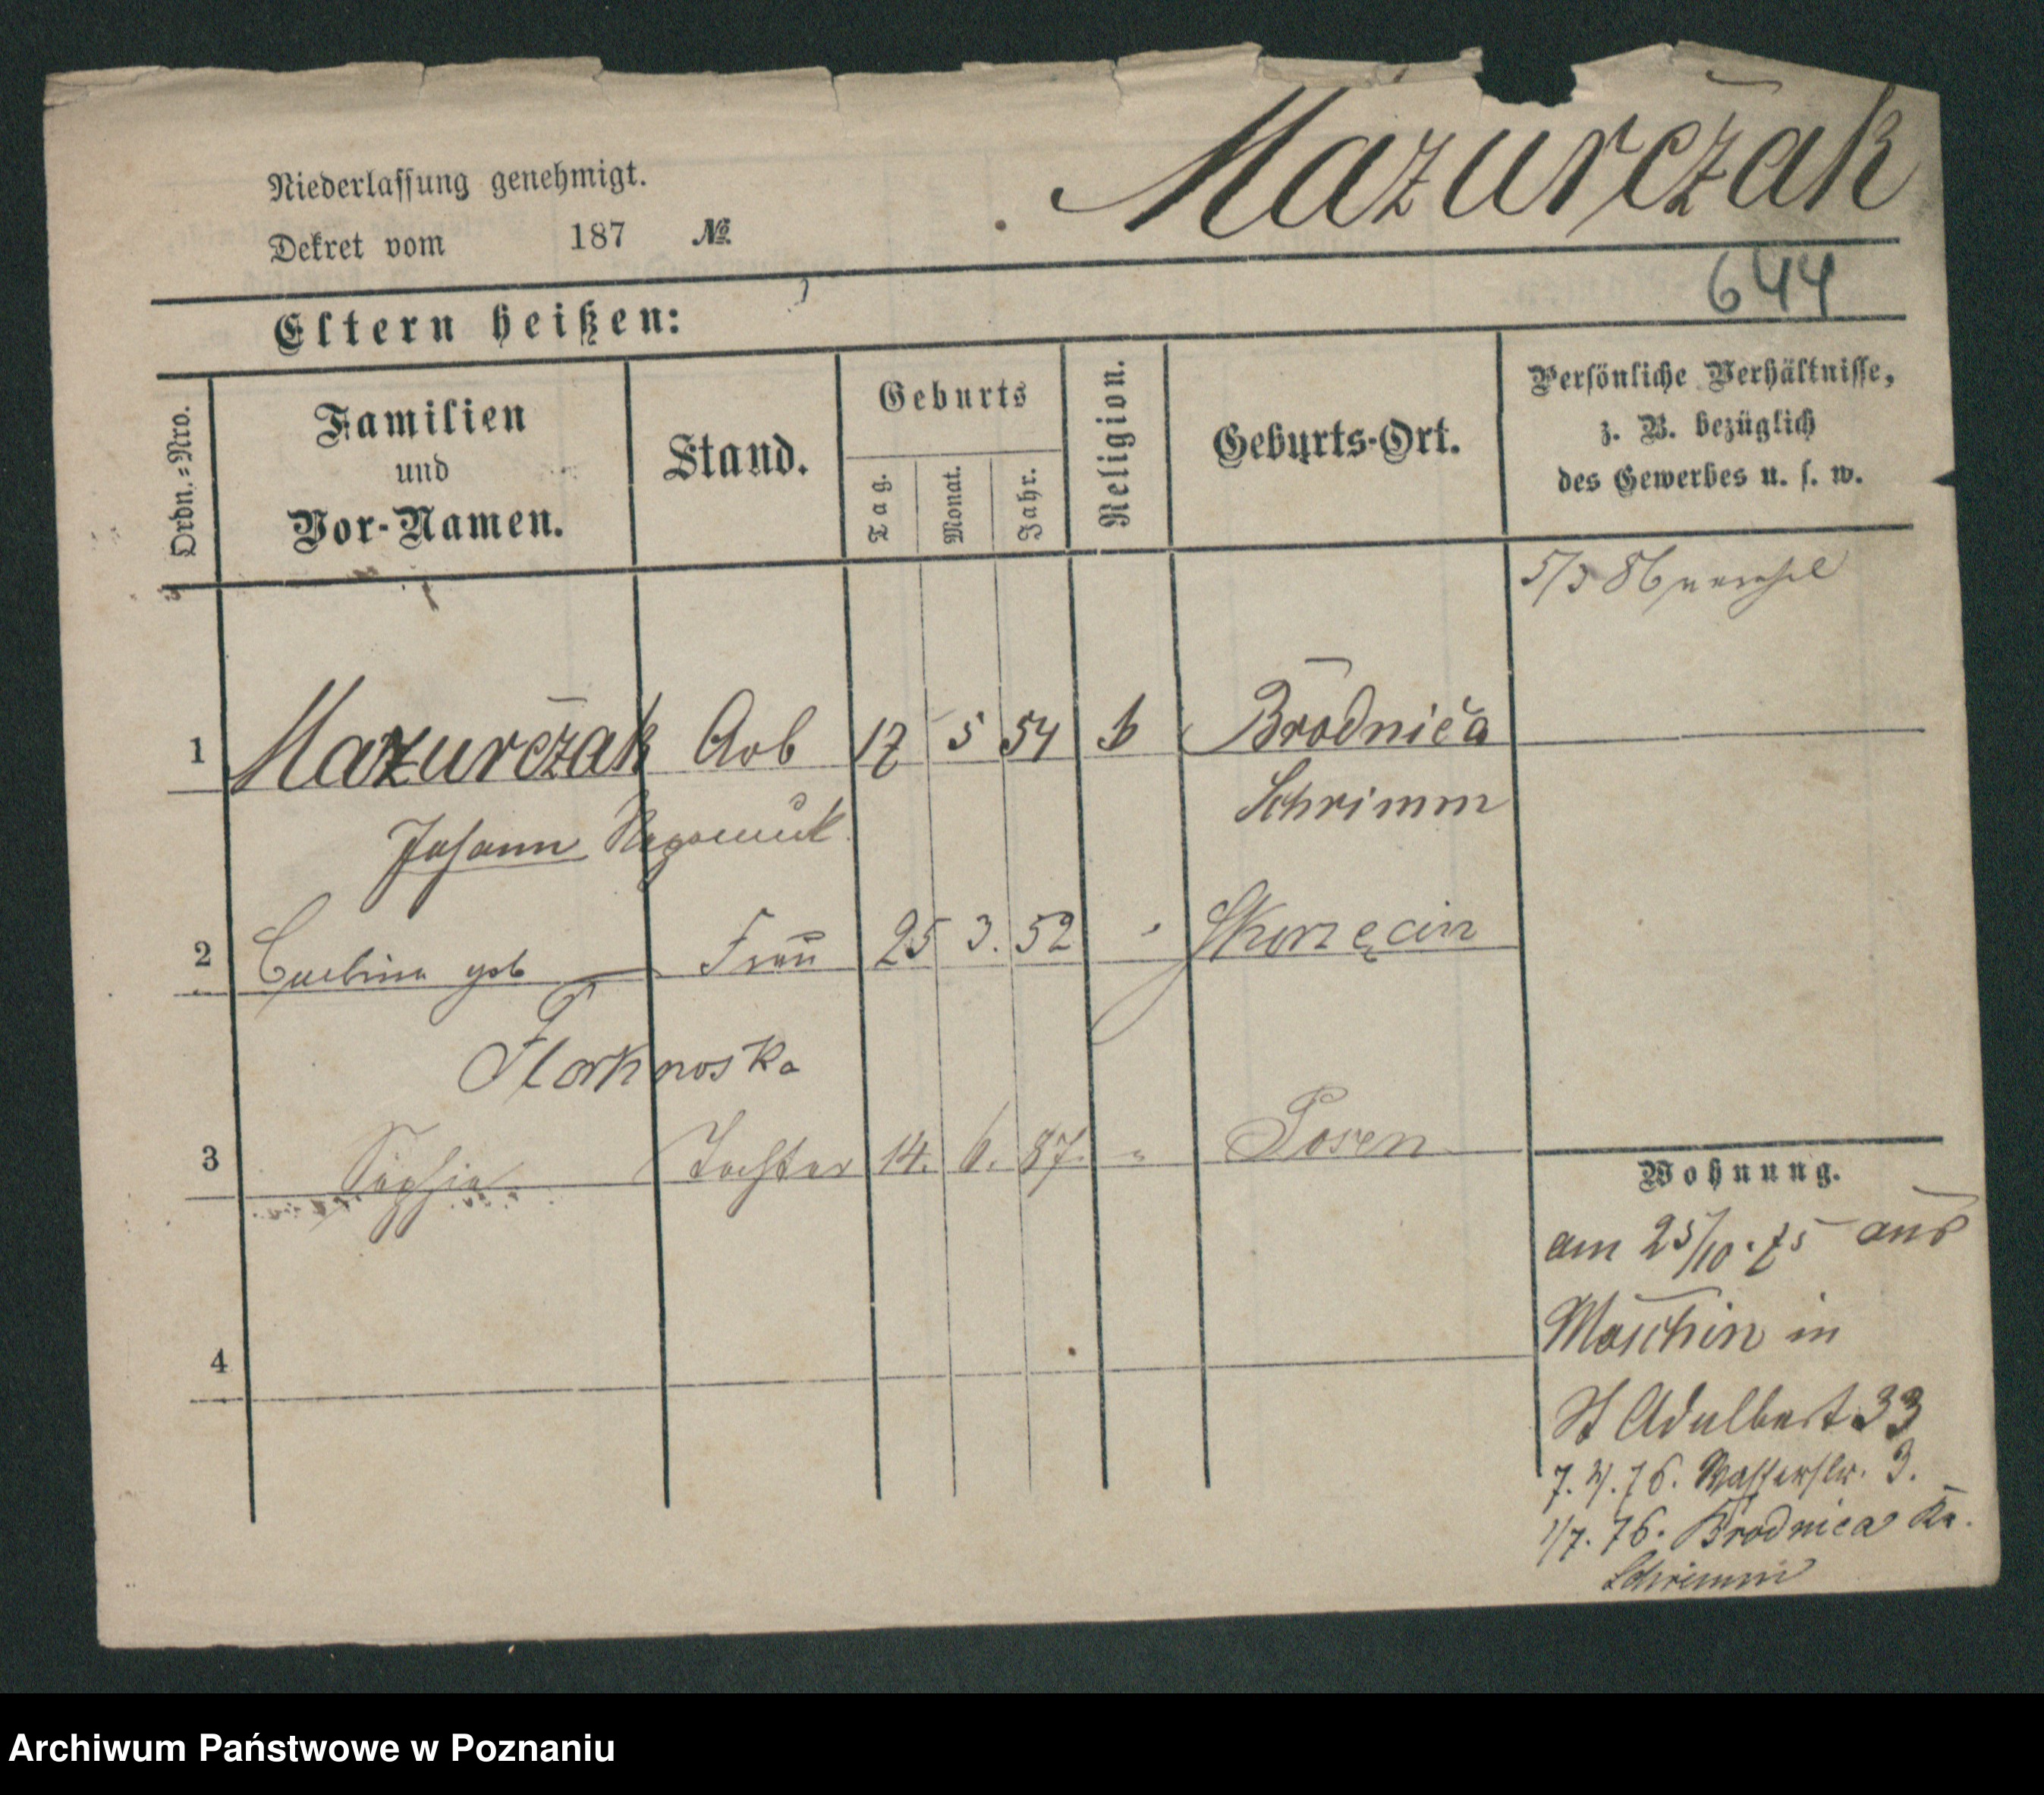 Mazurczak
Niederlassung genehmigt.
Dekret vom 187 №
644
Eltern heißen:
Ordn.=Nro.
Familien
und
Vor-Namen.
Stand.
Geburts
Tag.
Monat.
Jahr.
Religion.
Geburts-Ort.
Persönliche Verhältnisse,
z. B. bezüglich
des Gewerbes u. s. w.
5/3 86
1 Mazurczak Arb 17 5 54 k Brodnica
Schrimm
Johann Nepomuk
2 geb Frau 25 3. 52 " Skorzęcin
3 Sophie Tochter 14. 6. 87. " Posen
4
Wohnung.
am 25/10. 75 aus
Moschin in
St Adalbert 33
7. 4. 76. Wasserstr. 3.
1/7. 76. Brodnica Kr.
Schrimm
Archiwum Państwowe w Poznaniu